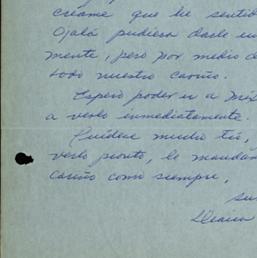 créame que he sentid
Ojalá pudiera darle un
mente, pero por medio d
todo nuestro cariño.
Espero poder ir a Méx
a verlo inmediatamente.
Cuídese mucho tío,
verlo pronto, le mandam
cariño como siempre,
su